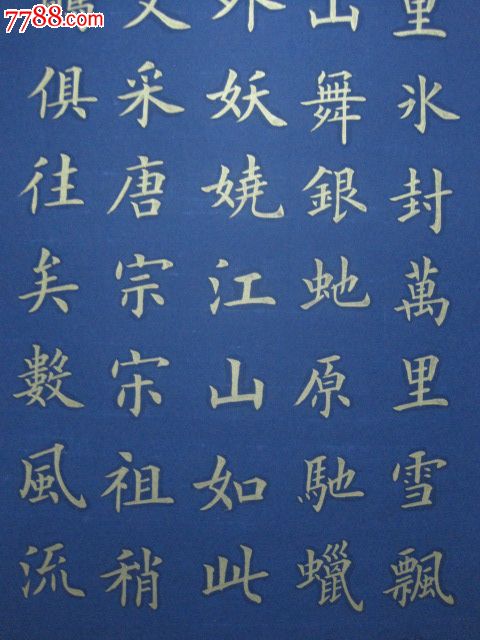 7788.com
里冰封萬里雪飄
山舞銀虵原馳蠟
外妖嬈江山如此
文采唐宗宋祖稍
俱往矣數風流